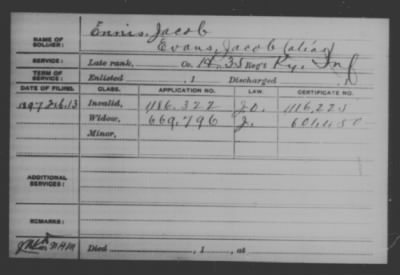 NAME OF SOLDIER: Ennis, Jacob
Evans, Jacob (alias)
SERVICE: Late rank, Co. H, 35 Reg't Ky. Inf
TERM OF SERVICE: Enlisted , 1 Discharged , 1
DATE OF FILING. CLASS. APPLICATION NO. LAW. CERTIFICATE NO.
Invalid, 1186.322
Widow, 669.796
Minor,
ADDITIONAL SERVICES:
REMARKS:
Died , 1 , at